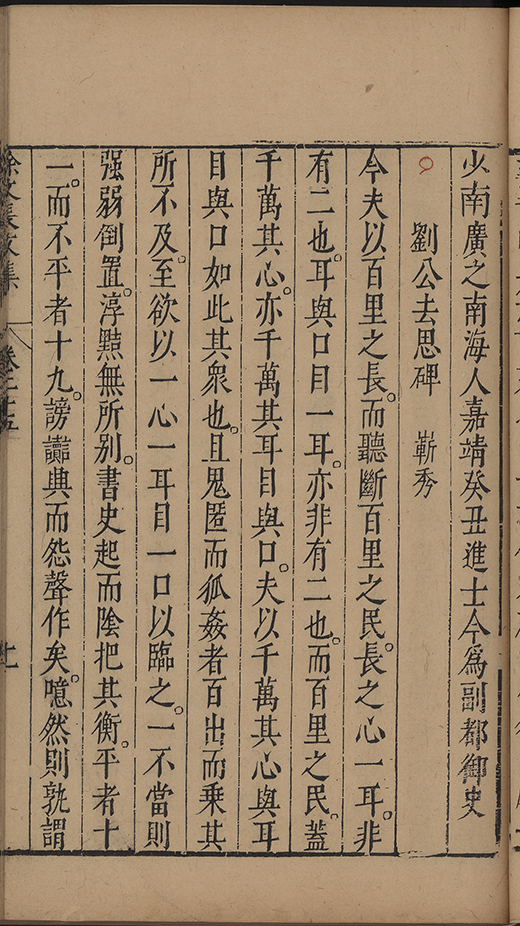 少南廣之南海人嘉靖癸丑進士今爲副都御史
劉公去思碑 嶄秀
今夫以百里之長。而聽斷百里之民。長之心一耳。非
有二也。耳與口目一耳。亦非有二也。而百里之民。蓋
千萬其心。亦千萬其耳目與口。夫以千萬其心與耳
目與口如此其衆也。且鬼匿而狐姦者百出而乘其
所不及。至欲以一心一耳目一口以臨之。一不當則
强弱倒置。淳黠無所別。書史起而陰把其衡。平者十
一。而不平者十九。謗讟興而怨聲作矣。噫然則孰謂
徐文長文集 卷二十五 七